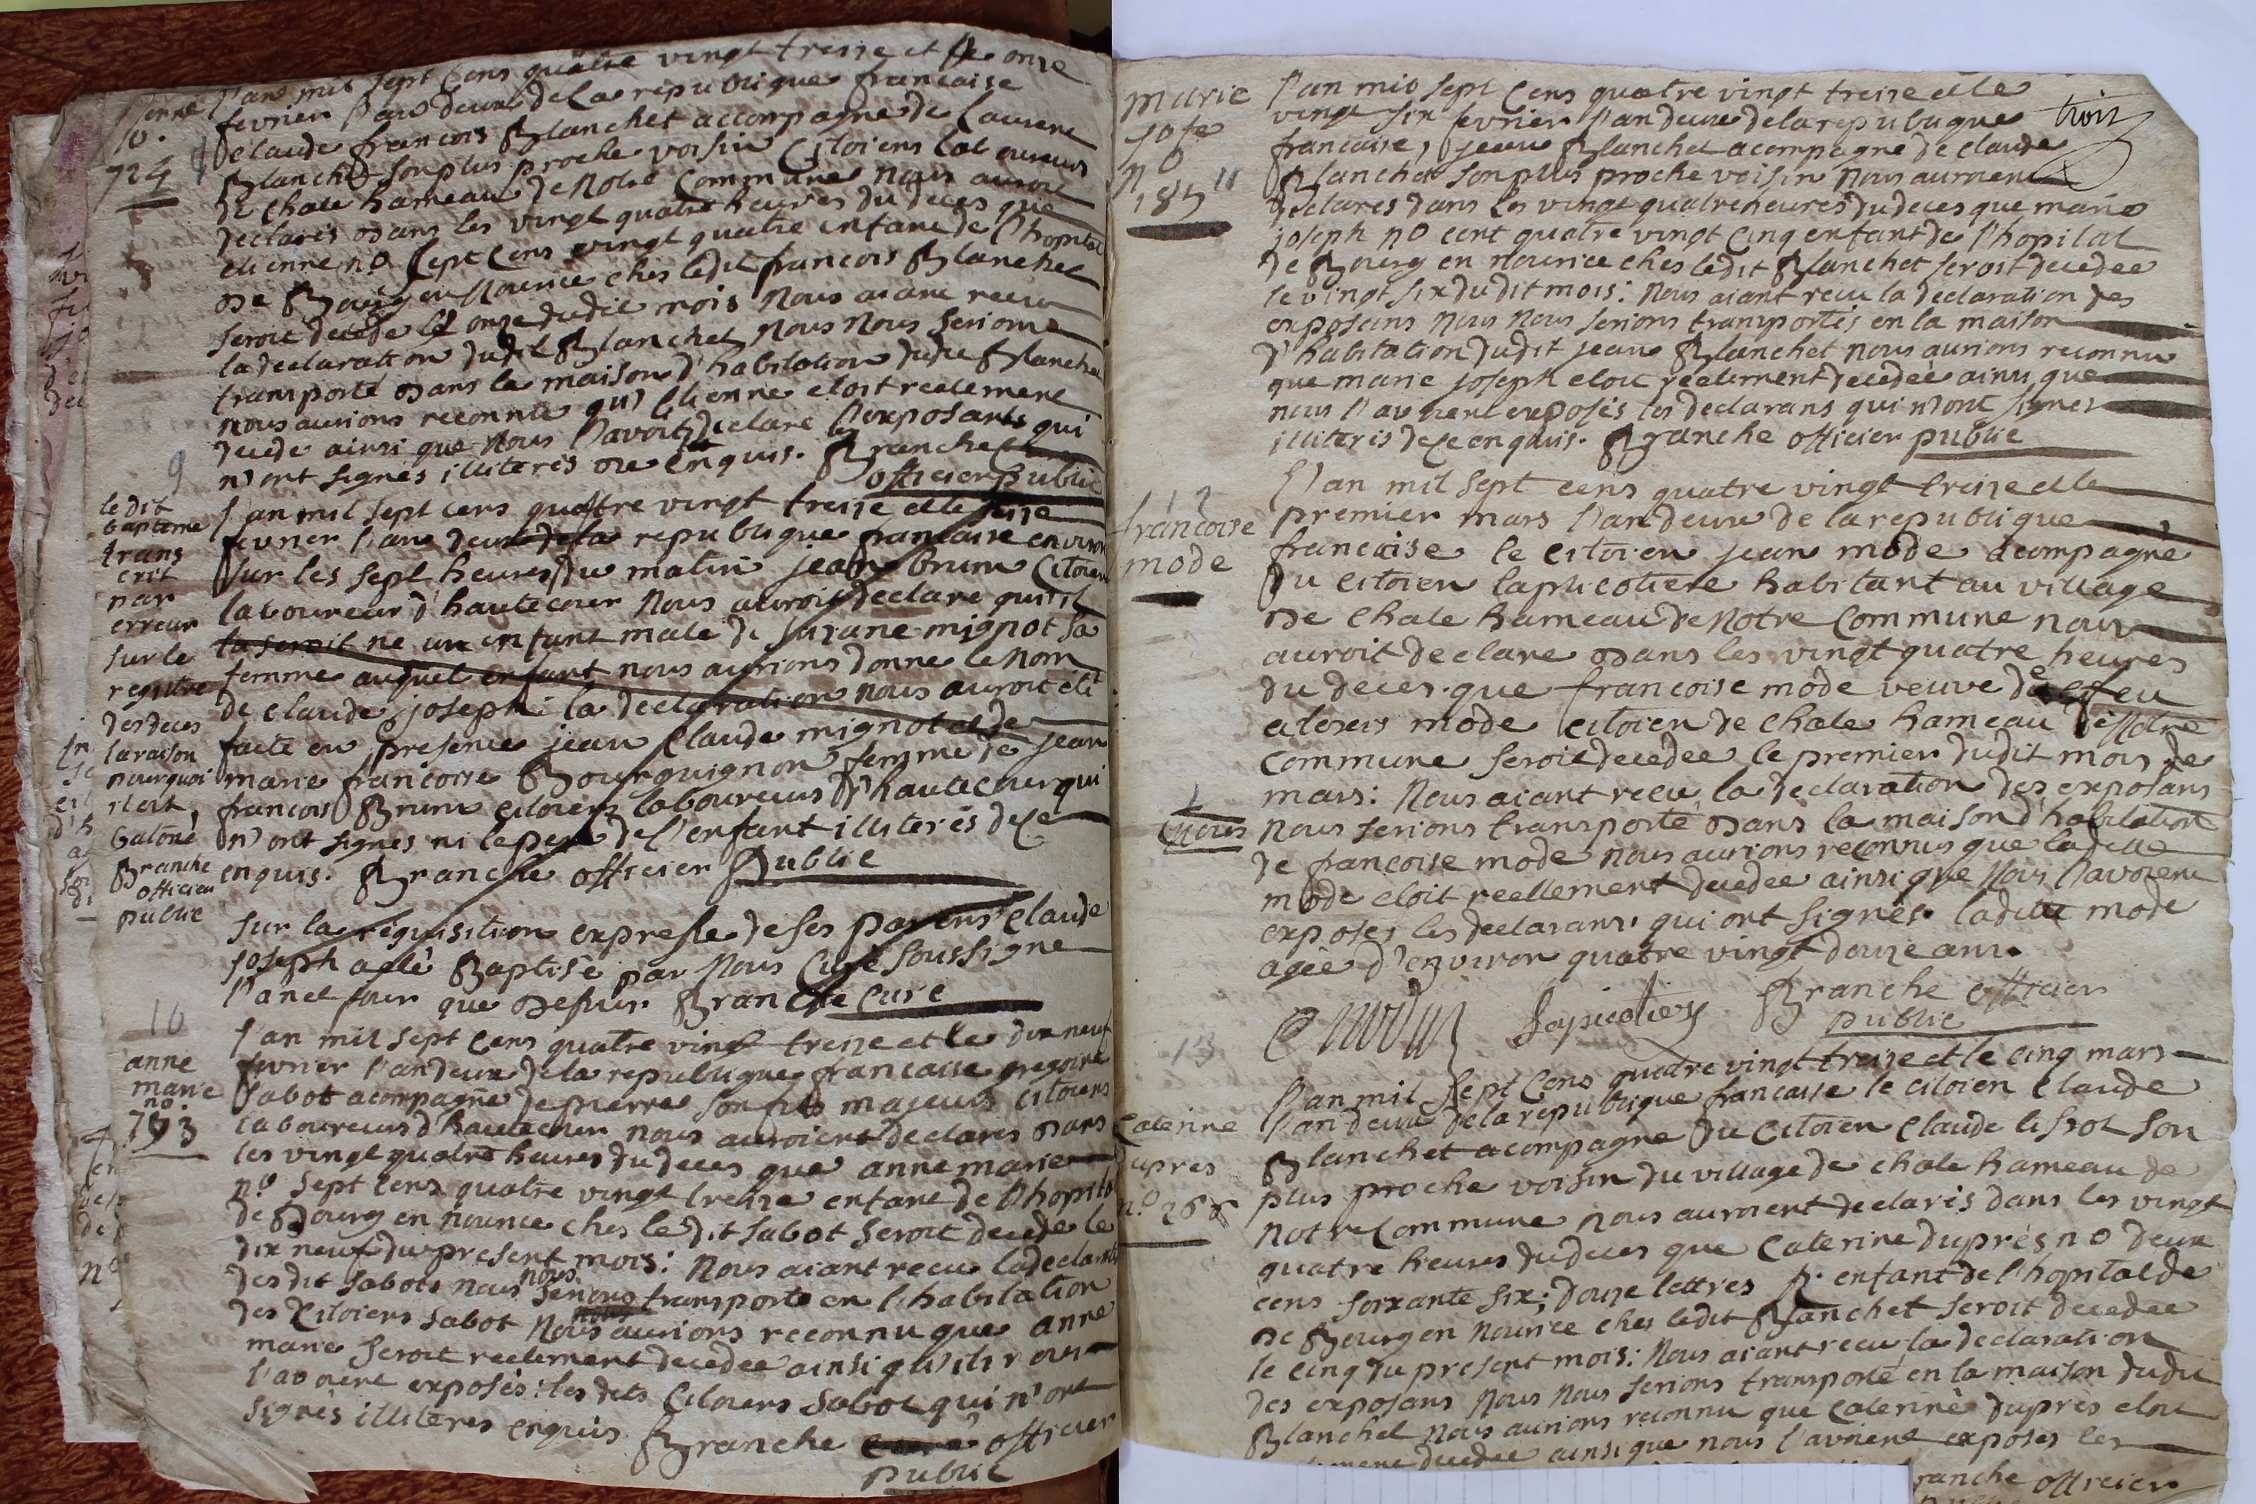 l'an mil sept cens quatre vingt treize et le onze
fevrier l'an deux de la republique francaise
claude francois Blanchet accompagné de Laurent
Blanchet son plus proche voisin citoiens laboureurs
de chale hameau de notre commune nous auroit
declarés dans les vingt quatre heures du deces que
etienne no sept cens vingt quatre enfant de l'hopital
de Bourg en nourice ches ledit francois Blanchet
seroit decede le onze dudit mois nous aiant recu
la declaration dudit Blanchet nous nous serions
transporté dans la maison d'habitation dudit Blanchet
nous aurions reconnu qu'etienne etoit reelement
decede ainsi que nous l'avoit declare les exposants qui
n'ont signés illiterés de ce enquis. Branche
officier public
no.
724
9
l'an mil sept cens quatre vingt treize et le seize
fevrier l'an deux de la republique francaise environ
sur les sept heures du matin jean brun citoien
laboureur d'hautecour nous auroit declare qu'il
lui seroit ne un enfant male de suzane mignot sa
femme auquel enfant nous aurions donne le nom
de claude joseph la declaration nous auroit été
faite en presence jean claude mignot et de
marie francoise Bourguignon femme de jean
francois Brun citoiens laboureurs d'hautecour qui
n'ont signés ni le pere de l'enfant illiterés de ce
enquis. Branche officier public
sur la réquisition expresse de ses parens claude
joseph a eté Baptisé par nous curé soussigne
l'an et jour que dessus Branche curé
le dit
bapteme
trans
crit
par
erreur
sur le
registre
des deces
la raison
pourquoi
il est
batoné
Branche
officier
public
10
anne
marie
no.
793
l'an mil sept cens quatre vingt treize et le dix neuf
fevrier l'an deux de la republique francaise gregoire
sabot acompagne de pierre son fils majeurs citoiens
laboureurs d'hautecour nous auroient declarés dans
les vingt quatre heures du deces que anne marie
no. sept cens quatre vingt treize enfant de l'hopital
de Bourg en nourice ches le dit sabot seroit decede le
dix neuf du present mois: nous aiant recu la declaration
des dit sabots nous nous serions transporté en l'habitation
des citoiens sabot nous aurions reconnu que anne
marie seroit reelement decedee ainsi qu'ils nous
l'avoient exposés: les dits citoiens sabot qui n'ont
signés illiterés enquis Branche curé officier
public
marie
jose
no
185
trois
l'an mil sept cens quatre vingt treize et le
vingt six fevrier l'an deux de la republique
francaise, jean Blanchet acompagne de claude
Blanchet son plus proche voisin nous auroient
declarés dans les vingt quatre heures du deces que marie
joseph no cent quatre vingt cinq enfant de l'hopital
de Bourg en nourice ches ledit Blanchet seroit decedee
le vingt six du dit mois: nous aiant recu la declaration des
exposans nous nous serions transportés en la maison
d'habitation dudit jean Blanchet nous aurions reconnu
que marie joseph etoit reelement decedée ainsi que
nous l'avoient exposés les declarans qui n'ont signés
illiterés de ce enquis. Branche officier public
12
francoise
mode
l'an mil sept cens quatre vingt treize et le
premier mars l'an deux de la republique
francaise le citoien jean mode acompagné
du citoien lapicotiere habitant au village
de chale hameau de notre commune nous
auroit declare dans les vingt quatre heures
du deces que francoise mode veuve de feu
alexis mode citoien de chale hameau de notre
commune seroit decedee le premier dudit mois de
mars: nous aiant recu la declaration des exposans
nous
nous serions transporté dans la maison d'habitation
de francoise mode nous aurions reconnus que ladite
mode etoit reellement decedee ainsi que nous l'avoient
exposés les declarans qui ont signés. ladite mode
agée d'environ quatre vingt douze ans.
Branche officier
public
13
caterine
dupres
n.o 266
l'an mil sept cens quatre vingt treize et le cinq mars
l'an deux de la republique francaise le citoien claude
Blanchet acompagne du citoien claude lissot son
plus proche voisin du village de chale hameau de
notre commune nous auroient declarés dans les vingt
quatre heures du deces que caterine duprés no deux
cens soixante six; douze lettres p. enfant de l'hopital de
de Bourg en nourice ches ledit Blanchet seroit decedee
le cinq du present mois: nous aiant recu la declaration
des exposans nous nous serions transporté en la maison dudit
Blanchet nous aurions reconnu que caterine dupres etoit
decedee ainsi que nous l'avoient exposés les
ranche officier